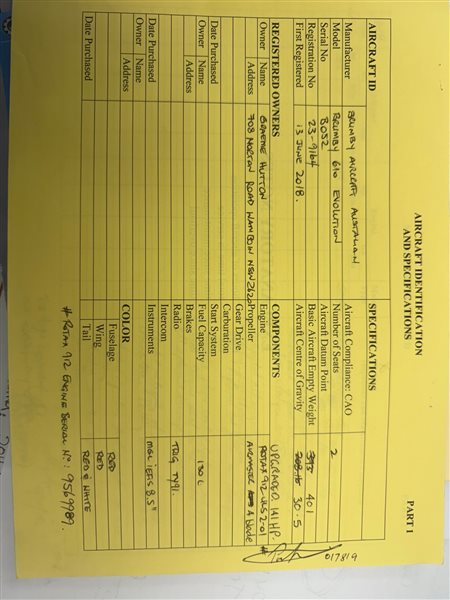 PART 1
AIRCRAFT IDENTIFICATION
AND SPECIFICATIONS
AIRCRAFT ID
Manufacturer BRUMBY AIRCRAFT AUSTRALIAN
Model BRUMBY 610 EVOLUTION
Serial No 8052
Registration No 23-9164
First Registered 13 JUNE 2018.
REGISTERED OWNERS
Owner Name GRAEME HUTTON
Address 708 NORTON ROAD WAMBOIN NSW 2620
Date Purchased
Owner Name
Address
Date Purchased
Owner Name
Address
Date Purchased
SPECIFICATIONS
Aircraft Compliance: CAO
Number of Seats 2
Aircraft Datum Point
Basic Aircraft Empty Weight 393 401
Aircraft Centre of Gravity 30.5
017819
COMPONENTS UPGRADED 141 HP.
Engine ROTAX 912-ULS 2-01 #
Propeller 4 blade
Geter Drive
Carburation
Start System
Fuel Capacity 130 L
Brakes
Radio TRIG TY91.
Intercom
Instruments MGL iEFIS 8.5"
COLOR
Fuselage RED
Wing RED
Tail RED & WHITE
# ROTAX 912 ENGINE SERIAL No: 9569989.